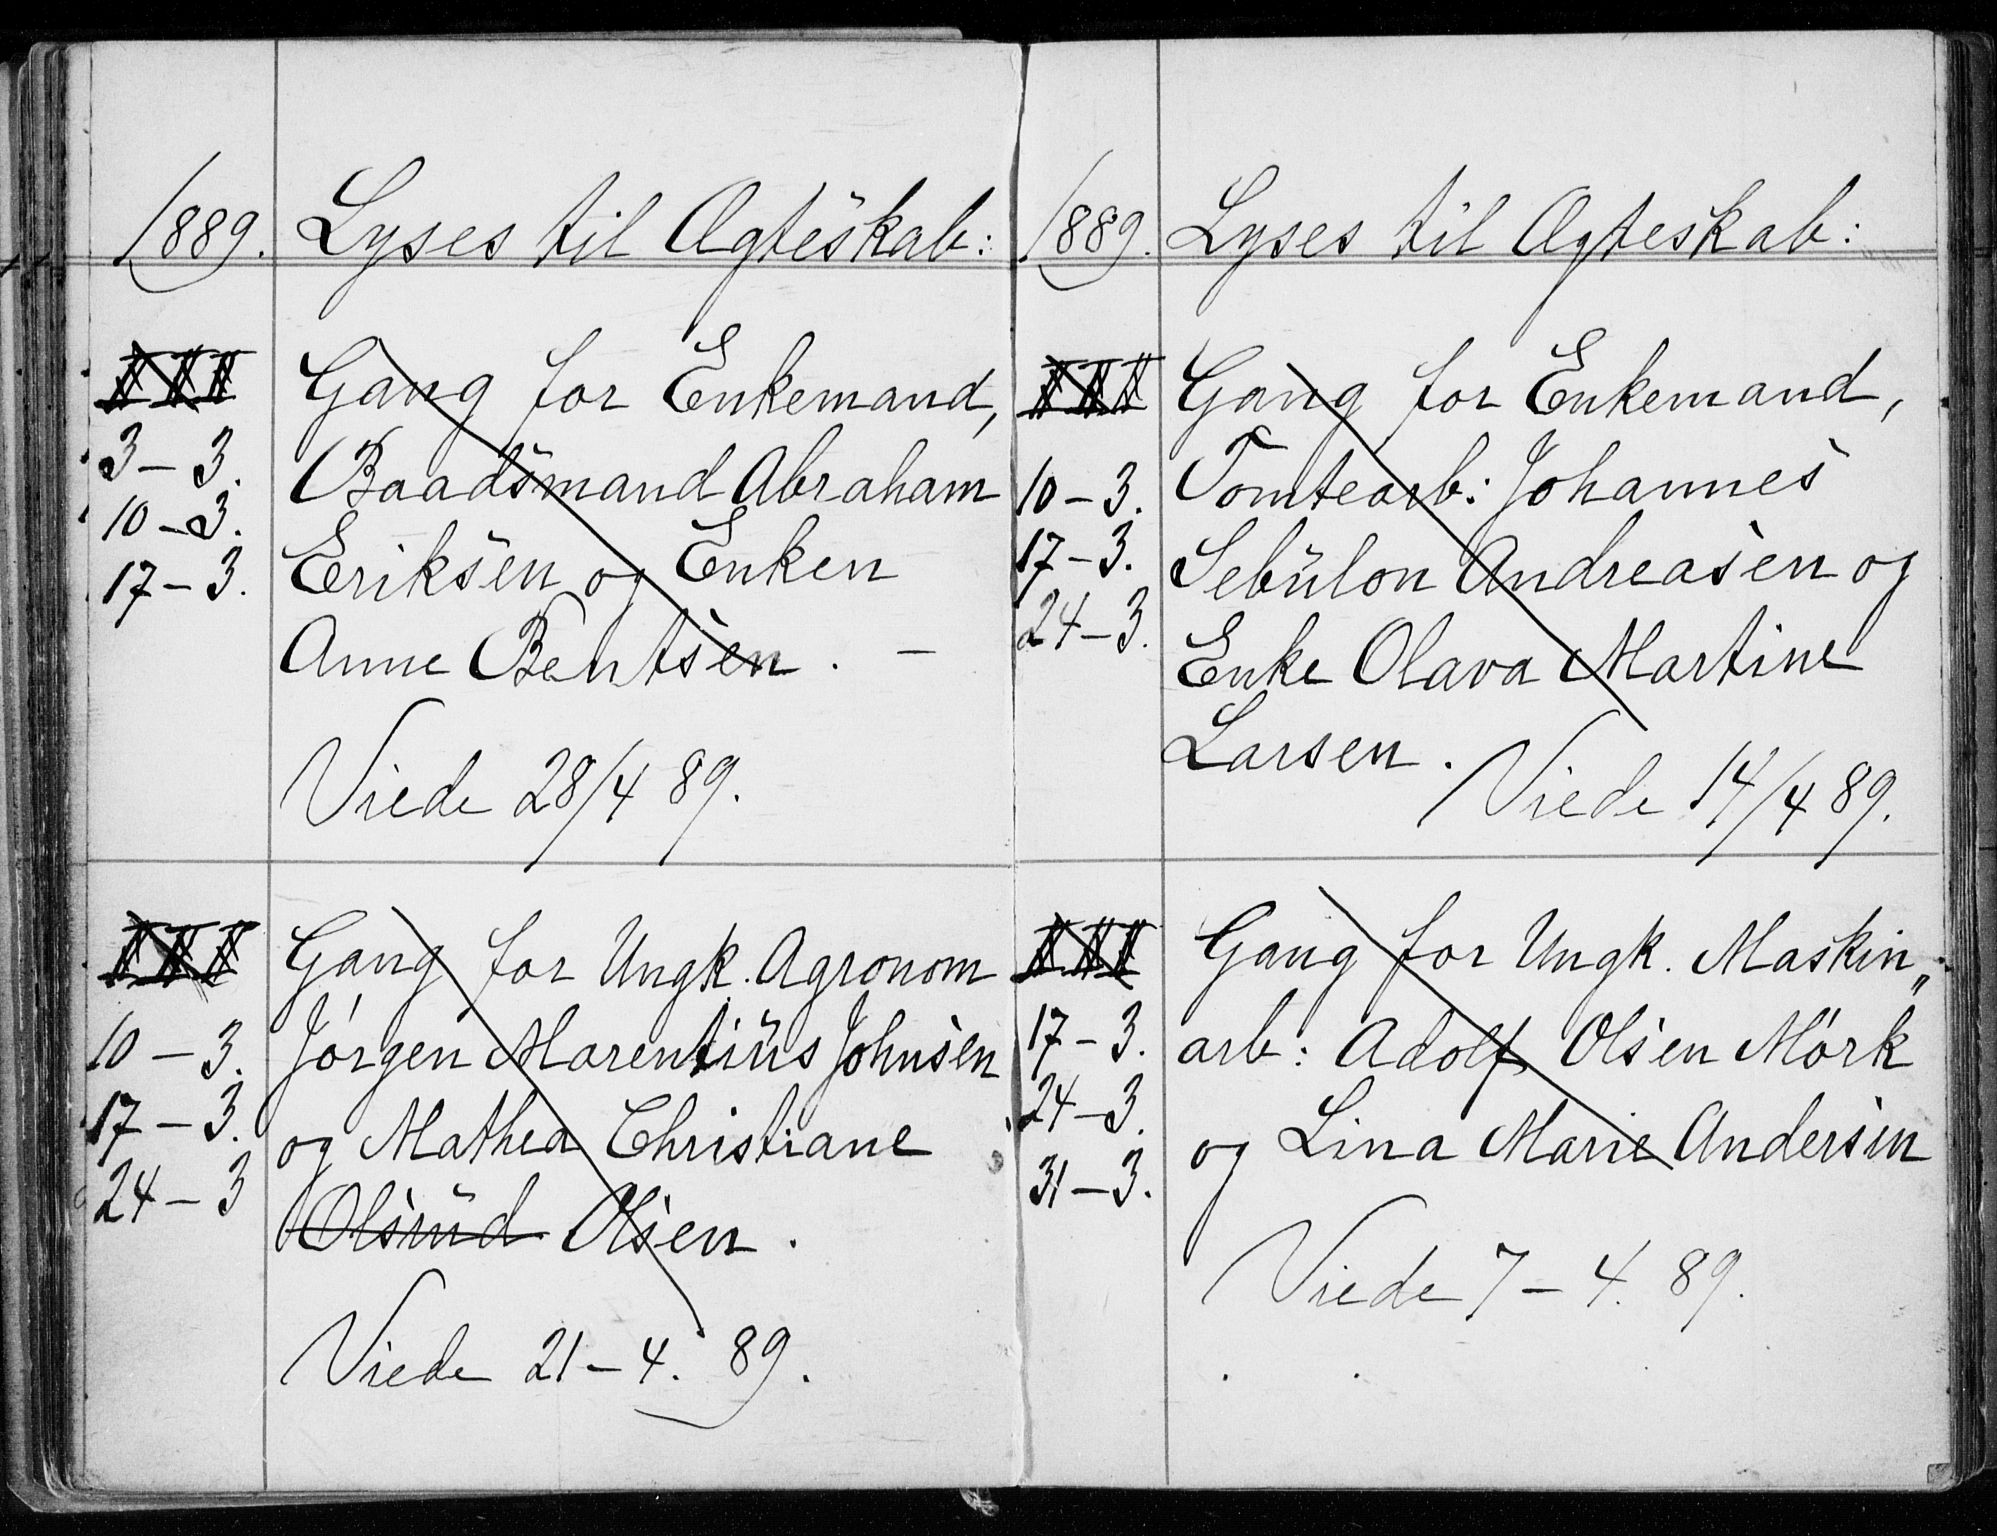 1889. Lyses til Ægteskab:
III Gang for Enkemand,
3-3. Baadsmand Abraham
10-3. Eriksen og Enken
17-3. Anne Bentsen. -
Viede 28/4 89.
III Gang for Ungk. Agronom
10-3. Jörgen Marentius Johnsen
17-3. og Mathea Christiane
24-3 Olsrud Olsen.
Viede 21-4. 89.
1889. Lyses til Ægteskab:
III Gang for Enkemand,
10-3. Tomtearb: Johannes
17-3. Sebulon Andreasen og
24-3. Enke Olava Martine
Larsen. Viede 14/4 89.
III Gang for Ungk. Maskin„
17-3. arb: Adolf Olsen Mörk
24-3. og Lina Marie Andersen
31-3.
Viede 7-4. 89.